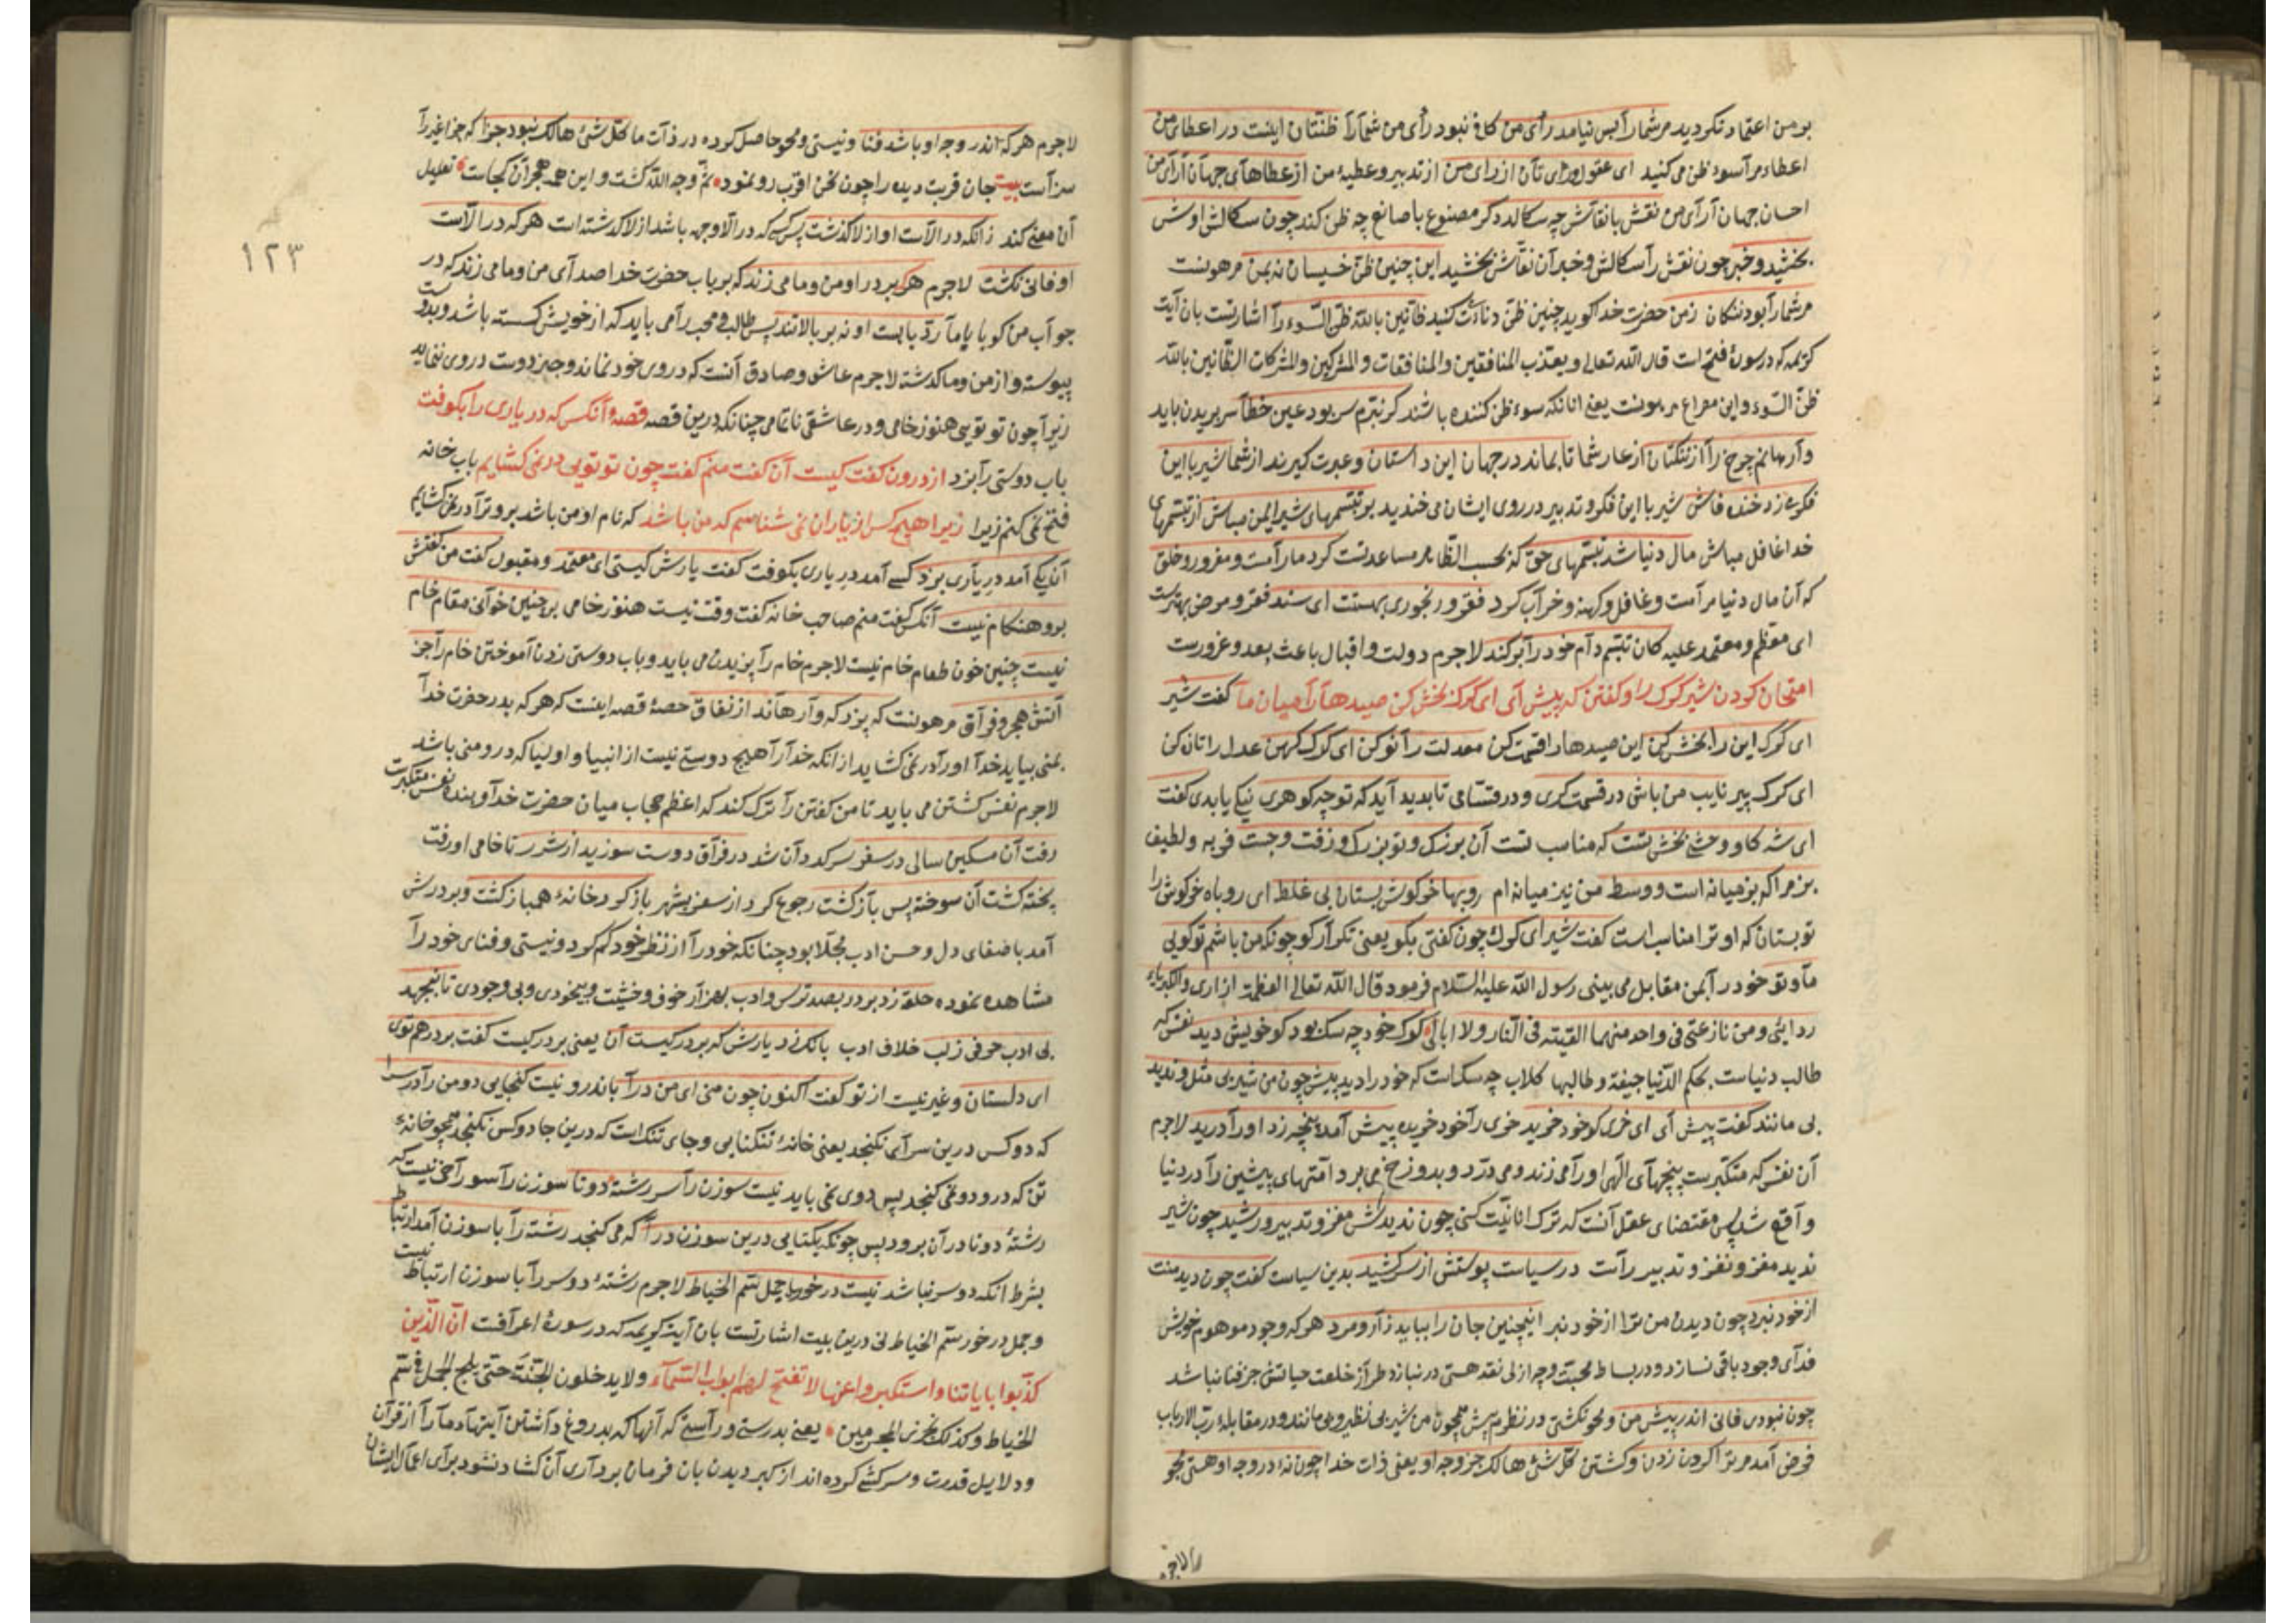 بر من اعتماد نکردید مر شما را بس نیامد رأی من کافی نبود رأی من شما را ظنتان اینست در اعطای من
اعطاء مرا سوء ظن می کنید ای عقول و رای تان از رای من از تدبیر و عطیهٔ من از عطاهای جهان آرای من
احسان جهان آرای من نقش با نقاش چه سکالد دکر مصنوع با صانع چه ظن کند چون سکالش اوش
بخشید و خبر چون نقش را سکالش و خبر آن نقاش بخشید این چنین ظن خسیسانه بمن مر هونست
مر شما را بود ننکان زمن حضرت خدا کوید چنین ظن دنائت کنید ظانین بالله ظن السوء را اشارتست بآن آیت
کریمه که در سورهٔ فتح است قال الله تعالی و یعذب المنافقین والمنافقات والمشرکین والمشرکات الظانین بالله
ظن السوء و این مصراع مرهونست یعنی آنانکه سوء ظن کننده باشند کر نبرم سر بود عین خطا سر بریدن باید
وارهانم چرخ را از ننکتان از عار شما تا بماند در جهان این داستان و عبرت کیرند از شما شیر با این
فکر می زد خنده فاش شیر با این فکر و تدبیر در روی ایشان می خندید بر تبسمهای شیر ایمن مباش از تبسمهای
خدا غافل مباش مال دنیا شد تبسمهای حق که بحسب الظاهر مساعدتست کرد ما را مست و مغرور و خلق
که آن مال دنیا مرا مست و غافل و کهنه و خراب کرد فقر و رنجوری بهستت ای سند فقر و مرض بهترست
ای معظم و معتمد علیه کان تبسم دام خود را بر کند لاجرم دولت و اقبال باعث بعد و غرورست
امتحان کردن شیر کرک را و کفتن که پیش آی ای کرک بخش کن صیدها را میان ما کفت شیر
ای کرک این را بخش کن این صیدها را قسمت کن معدلت را نو کن ای کرک کهن عدل را تازه کن
ای کرک پیر نایب من باش در قسمت کری و در قسامی تا بدید آید که تو چه کوهری نیکی یا بدی کفت
ای شه کاو وحشی بخش تست که مناسب تست آن بزرک و تو بزرک و زفت و چست فربه و لطیف
بز مرا که بز میانه است و وسط من نیز میانه ام روبها خرکوش بستان بی غلط ای روباه خرکوش را
تو بستان که او ترا مناسب است کفت شیر ای کرک چون کفتی بکو یعنی تکرار کو چونکه من باشم تو کویی
ما و تو خود را بمن مقابل می بینی رسول الله علیه السلام فرمود قال الله تعالی العظمة ازاری والکبریاء
ردایی و من نازعنی فی واحد منهما القیته فی النار ولا ابالی کرک خود چه سک بود کو خویش دید نفس که
طالب دنیاست بحکم الدنیا جیفة و طالبها کلاب چه سک است که خود را دید پیش چون من شیر بی مثل و ندید
بی مانند کفت پیش آی ای خری کو خود خرید خری را خود خریده پیش آمد پنجه زد او را درید لاجرم
آن نفس که متکبرست پنجهای الهی او را می زند و می درد و بدوزخ می برد و امتهای پیشین را در دنیا
واقع شد پس مقتضای عقل آنست که ترک انانیت کنی چون ندیدش مغز و تدبیر و رشید چون شیر
ندید مغز و نغز و تدبیر راست در سیاست پوستش از سر کشید بدین سیاست کفت چون دید منت
از خود نبرد چون دیدن من ترا از خود نبرد اینچنین جان را بباید زار و مرد هر که وجود موهوم خویش
فدای وجود باقی نسازد و در بساط محبت وجه ازلی نقد هستی در نبازد طراز خلعت حیاتش جز فنا نباشد
چون نبودی فانی اندر پیش من و محو نکشتی در نظرم پیش همچون من شیر بی نظیر و بی مانند و در مقابلهٔ رب الارباب
فرض آمد مر ترا کردن زدن و کشتن کل شیء هالک جز وجه او یعنی ذات خدا چون نهٔ در وجه او هستی مجو
لاجرم
۱۲۳
لاجرم هر که اندر وجه او باشد فنا و نیستی و محو حاصل کرده در ذات ما کل شیء هالک نبود جزا که جزا غیر را
سزاست بیت جان قربت دیده را چون نحن اقرب رو نمود ثم وجه الله کشت و این همه هجران کجاست تعلیل
آن معنی کند زانکه در الاست او از لا کذشت پس کسی که در الا وجهه باشد از لا کذشته است هر که در الاست
او فانی نکشت لاجرم هر که بر در او من و ما می زند که بر باب حضرت خدا صدای من و ما می زند که در
جواب من کو یا یا ما رد بابست او نه بر بالاتند پس طالب و محب را می باید که از خویش کسسته باشد و بدوست
پیوسته و از من و ما کذشته لاجرم عاشق و صادق آنست که در وی خود نماند و جز دوست در وی ننماید
زیرا چون تو تویی هنوز خامی و در عاشقی ناتمامی چنانکه درین قصه قصهٔ آنکس که در یاری را بکوفت
باب دوستی را بزد از درون کفت کیست آن کفت منم کفت چون تو تویی در نمی کشایم باب خانه
فتح نمی کنم زیرا زیرا هیچ کس از یاران نمی شناسم که من باشد که نام او من باشد برو ترا در نمی کشایم
آن یکی آمد در یاری بزد کسی آمد در یاری بکوفت کفت یارش کیستی ای معتمد و مقبول کفت من کفتش
برو هنکام نیست آنکس کفت منم صاحب خانه کفت وقت نیست هنوز خامی بر چنین خوانی مقام خام
نیست چنین خون طعام خام نیست لاجرم خام را پزیدن می باید و باب دوستی زدن آموختن خام را جز
آتش هجر و فراق مرهونست که پزد که وارهاند از نفاق حصهٔ قصه اینست که هر که بدر حضرت خدا
بمنی بیاید خدا او را در نمی کشاید از آنکه خدا را هیچ دوستی نیست از انبیا و اولیا که درو منی باشد
لاجرم نفس کشتن می باید تا من کفتن را ترک کند که اعظم حجاب میان حضرت خدا و بنده نفس متکبرست
رفت آن مسکین سالی در سفر سر کردان شد در فراق دوست سوزید از شرر تا خامی او رفت
پخته کشت آن سوخته پس باز کشت رجوع کرد از سفر بشهر باز کرد خانهٔ همباز کشت و بر درش
آمد با صفای دل و حسن ادب مجلا بود چنانکه خود را از نظر خود کم کرد و نیستی و فنای خود را
مشاهده نموده حلقه زد بر در بصد ترس و ادب بهزار خوف و خشیت و بیخودی و بی وجودی تا بنجهد
بی ادب حرفی ز لب خلاف ادب بانک زد یارش که بر در کیست آن یعنی بر در کیست کفت بر در هم توی
ای دلستان و غیر نیست از تو کفت اکنون چون منی ای من در آ باندرو نیست کنجایی دو من را در سرا
که دو کس درین سرای نکنجد یعنی خانهٔ تنکنایی و جای تنک است که درین جا دو کس نکنجد همچو خانهٔ
تن که درو دو نمی کنجد پس دوی نمی باید نیست سوزن را سر رشته دو تا سوزن را سوراخی نیست که
رشتهٔ دو تا در آن برود پس چونکه یکتایی درین سوزن در آ که می کنجد رشته را با سوزن آمد ارتباط
بشرط آنکه دو سر نباشد نیست در خور با جمل سم الخیاط لاجرم رشتهٔ دو سر را با سوزن ارتباط نیست
و جمل در خور سم الخیاط نی درین بیت اشارتست بآن آیت کریمه که در سورهٔ اعرافست ان الذین
کذبوا بایاتنا واستکبروا عنها لا تفتح لهم ابواب السماء ولا یدخلون الجنة حتی یلج الجمل فی سم
الخیاط و کذلک نجزی المجرمین یعنی بدرستی و راستی که آنها که بدروغ داشتن آیتهاء ما را از قرآن
و دلایل قدرت و سر کشی کرده اند از کبر دیدن بآن فرمان برداری آن کشاد نشود برای اعمال ایشان